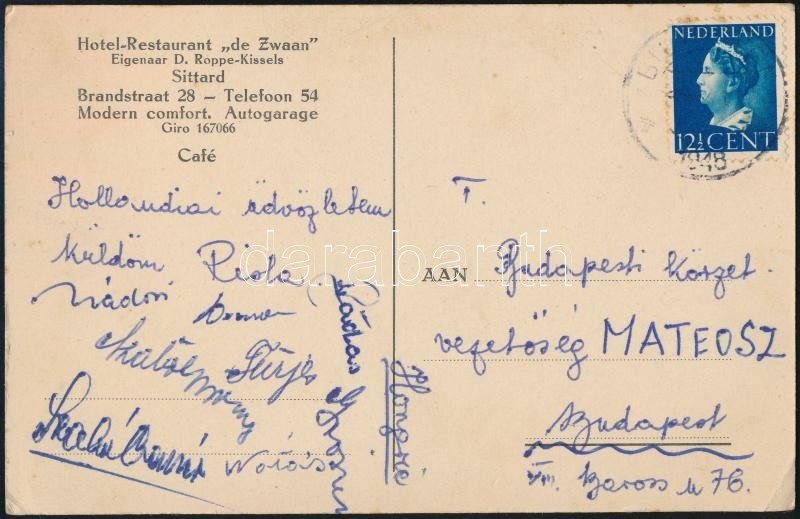 Hotel-Restaurant „de Zwaan"
Eigenaar D. Roppe-Kissels
Sittard
Brandstraat 28 – Telefoon 54
Modern comfort. Autogarage
Giro 167066
Café
Hollandiai üdvözletem
küldöm Piola
Nádori
Fürjes
Kádas
NEDERLAND
12½ CENT
1948
T.
AAN Budapesti Körzet
vezetőség MATEOSZ
Budapest
VIII. Baross u 76.
Hongrie
darabanth